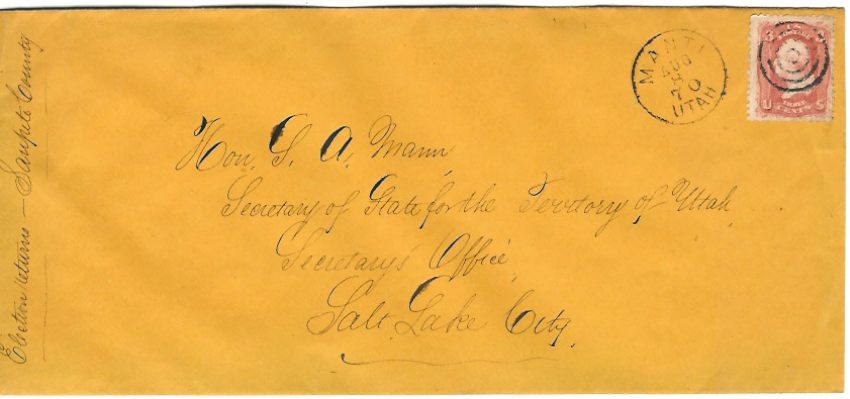 Hon. S. A. Mann
Secretary of State for the Territory of Utah
Secretary's Office
Salt Lake City.
Election returns — Sanpete County
MANTI
AUG
70
UTAH
U S
THREE
CENTS